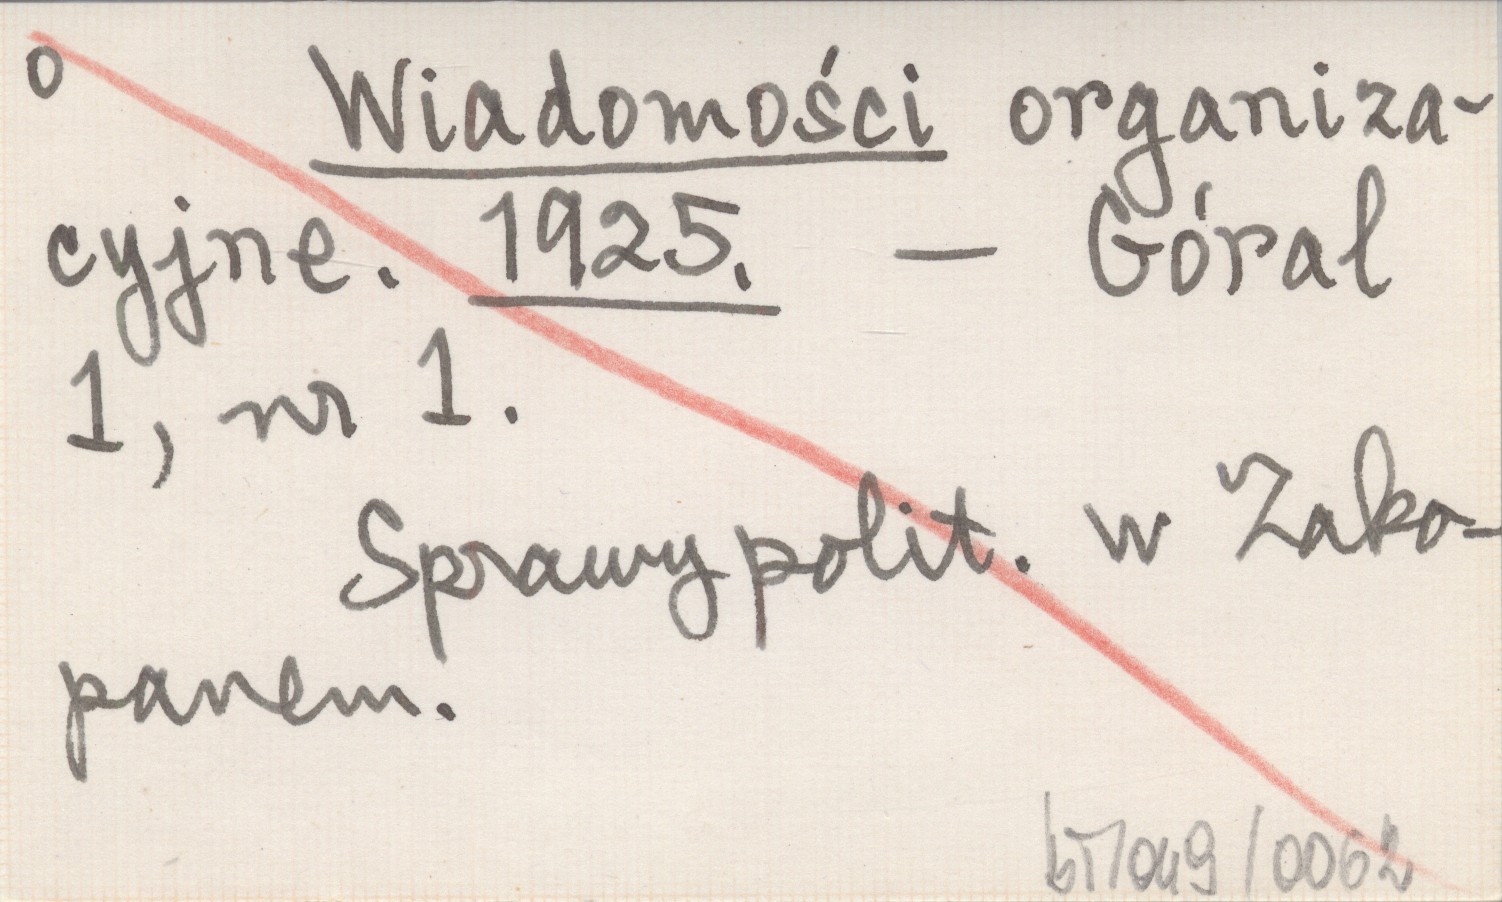 o Wiadomości organiza-
cyjne. 1925. — Góral
1, nr 1.
Sprawy polit. w Zako-
panem.
bT/049/0062